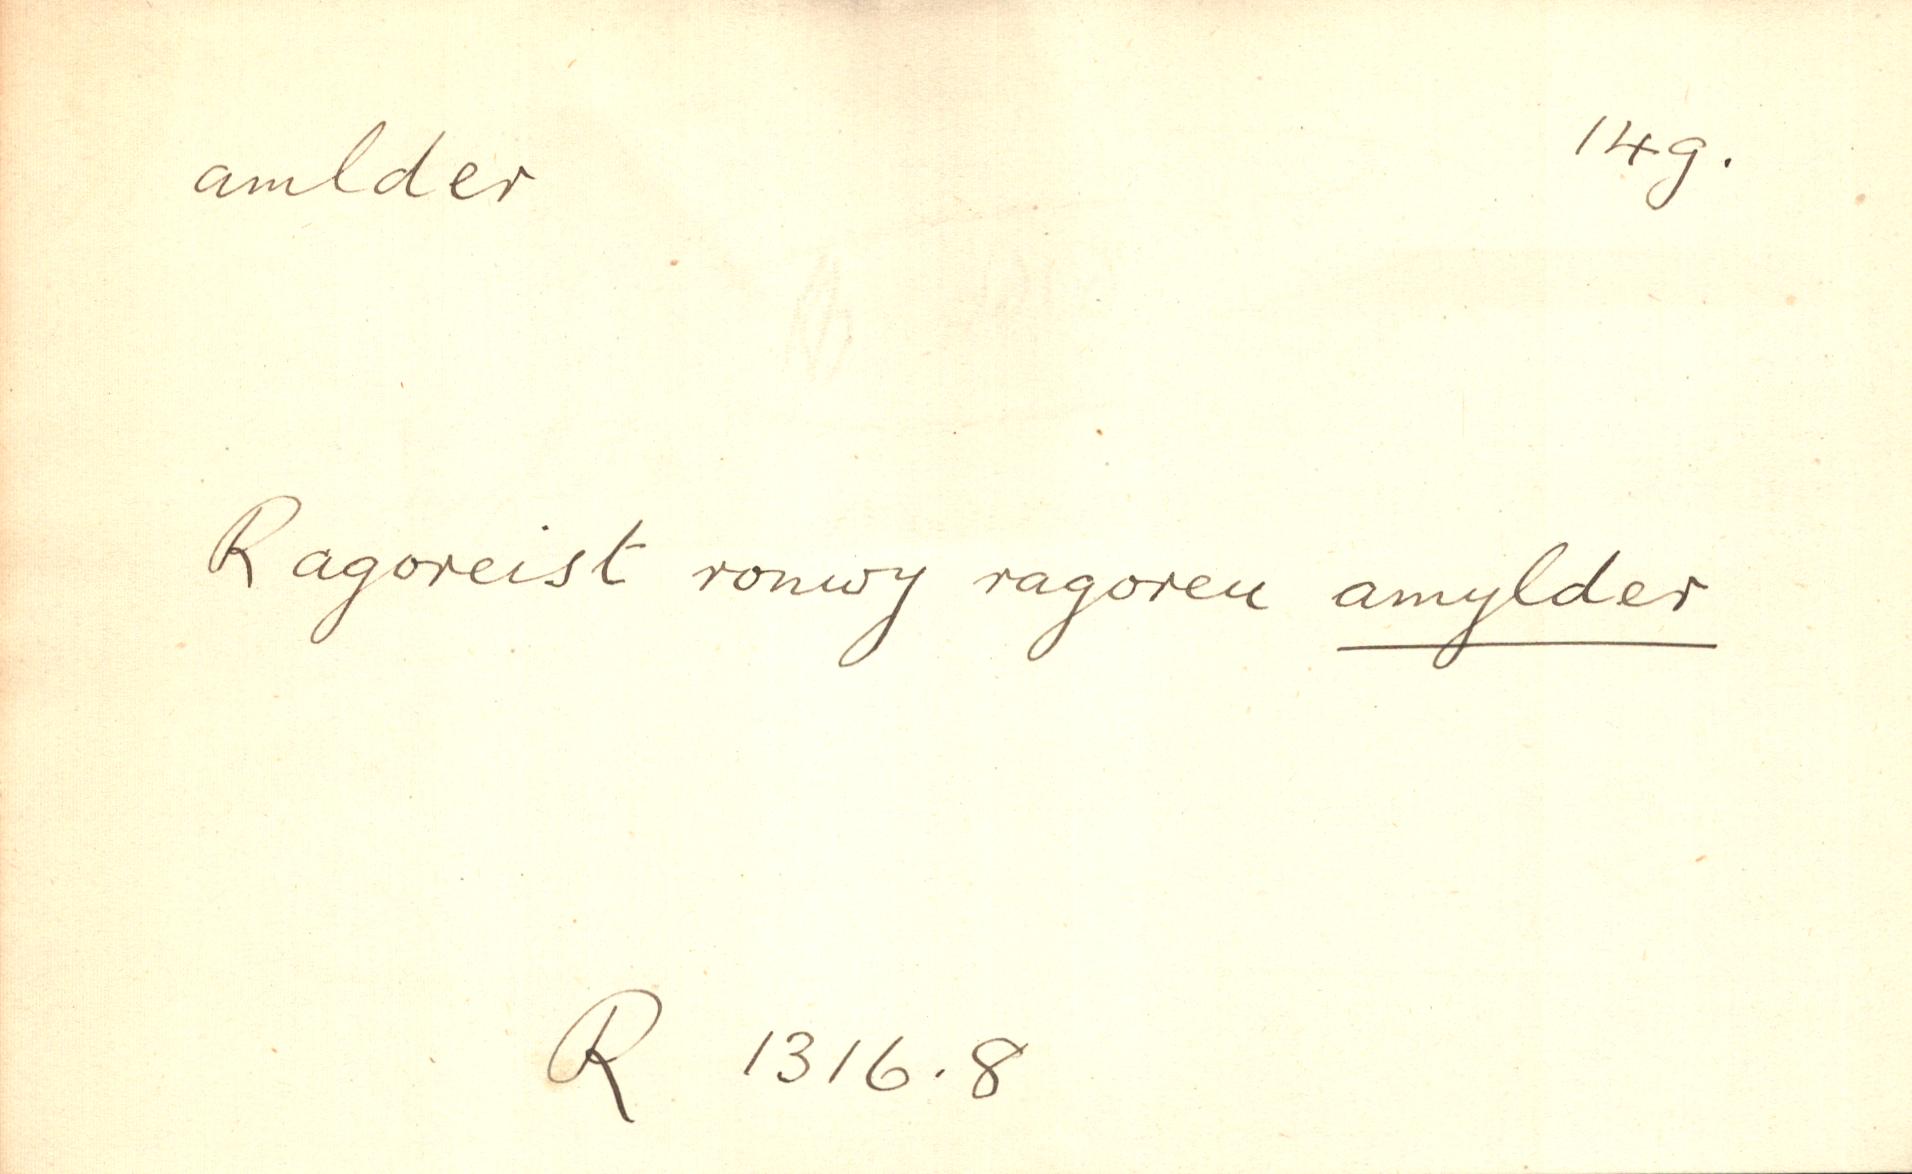 amlder 14g.
Ragoreist ronwy ragoreu amylder
R 1316.8